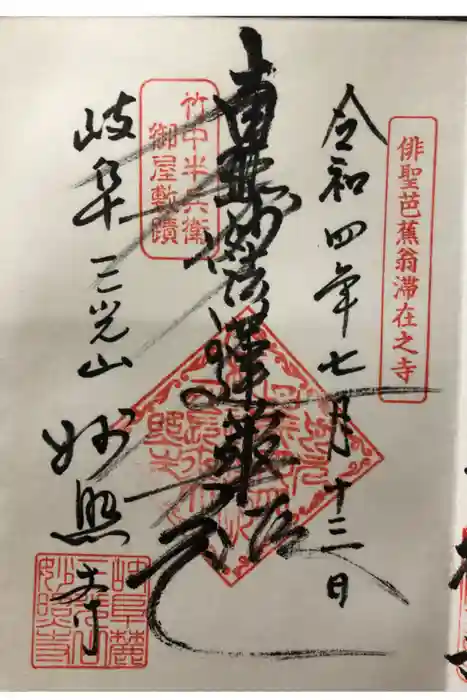 俳聖芭蕉翁滞在之寺
令和四年七月十三日
南無妙法蓮華経
竹中半兵衛
御屋敷蹟
岐阜 三光山 妙照寺